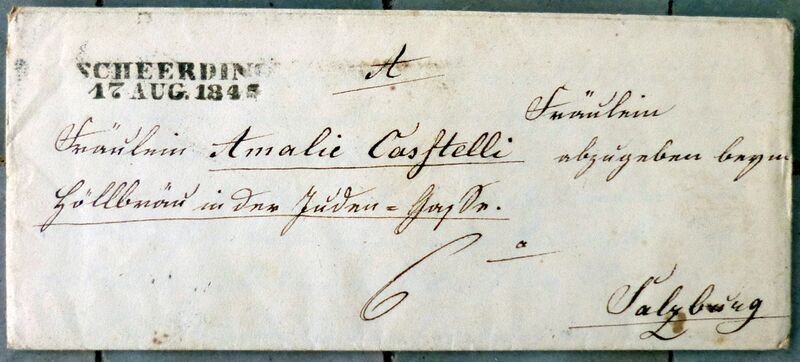 SCHEERDING
17 AUG. 184
A
Fräulein
Fräulein Amalie Casstelli abzugeben beym
Höllbräu in der Juden=Gasse.
6
Salzburg